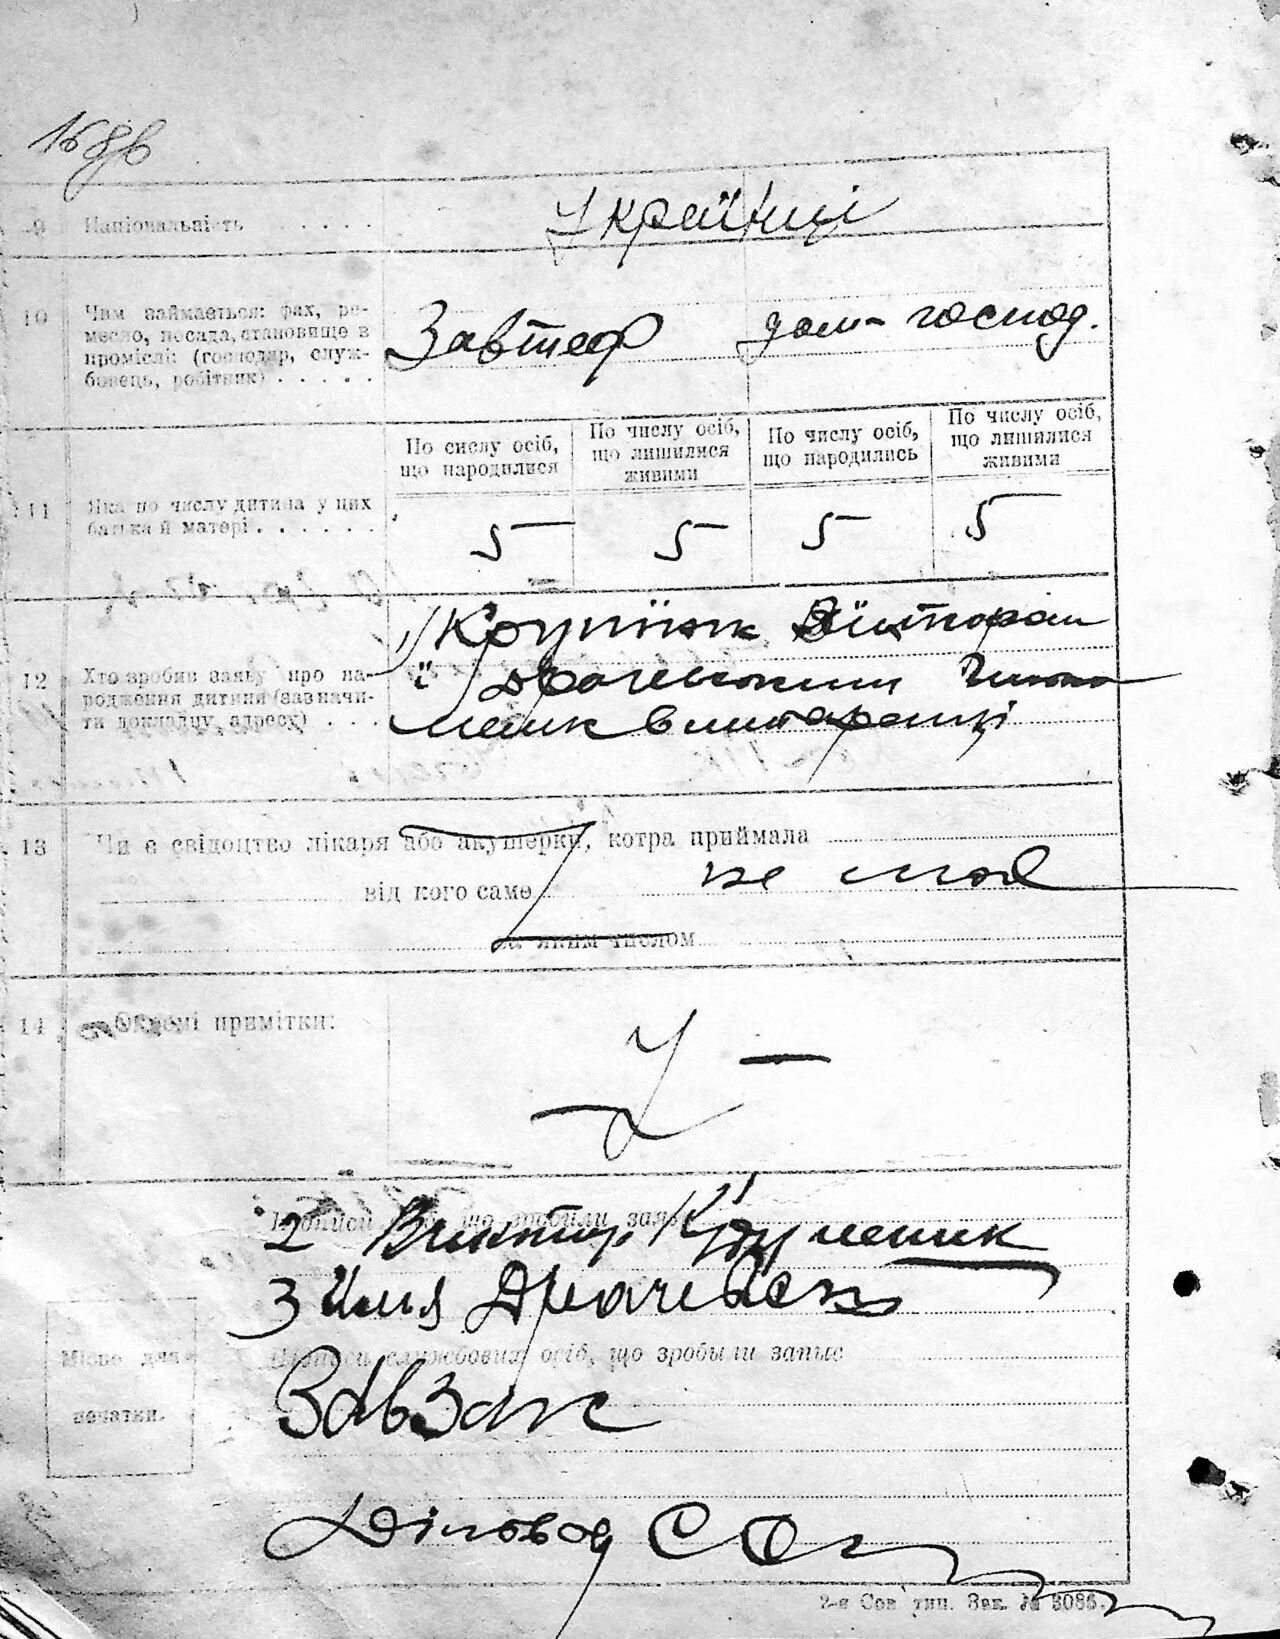 9 Національність . . . . Українці
10 Чим займається: фах, ре-
месло, посада, становище в
промислі: (господар, служ-
бовець, робітник) . . . . .
Завтеф дом-господ.
По числу осіб, що народилися
По числу осіб, що лишилися живими
По числу осіб, що народились
По числу осіб, що лишилися живими
11 Яка по числу дитина у цих
батька й матері . . . . . .
5 5 5 5
12 Хто зробив заяву про на-
родження дитини (зазначи-
ти докладну адресу) . . .
1)
ї
мешк
13 Чи є свідоцтво лікаря або акушерки, котра приймала
від кого саме не має
за яким числом
14 Окремі примітки: —
Підписи що зробили заяву
2 Виктор
3 Илля
Місце для
печатки.
Підписи службових осіб, що зробыли запис
Завзагс
Діловод
2-а Сов тип. Зак. №